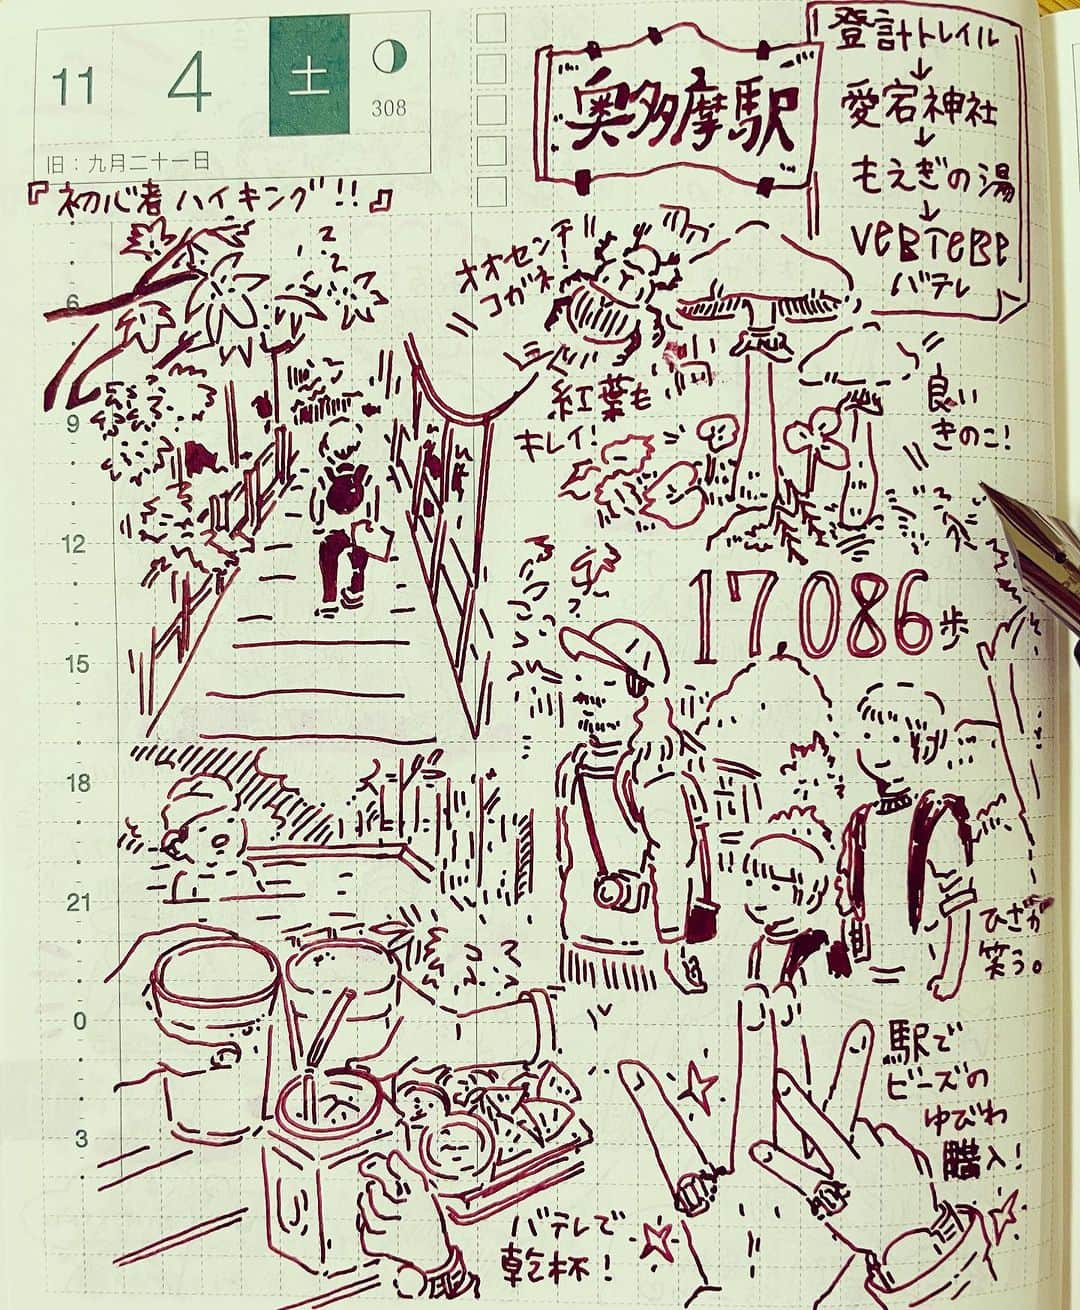 11 4 土
308
旧：九月二十一日
『初心者ハイキング!!』
奥多摩駅
登計トレイル
↓
愛宕神社
↓
もえぎの湯
↓
VERTERE
バテレ
オオセンチ
コガネ!
紅葉も
キレイ!
良い
きのこ!
17,086歩
ひざが
笑う。
駅で
ビーズの
ゆびわ
購入!
バテレで
乾杯!
6
9
12
15
18
21
0
3